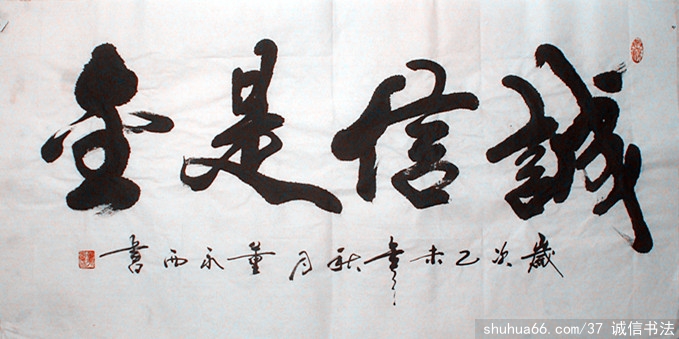 誠信是金
歲次乙未年秋月董永西書
shuhua66.com/37 诚信书法